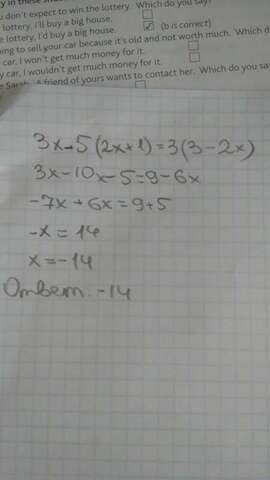 u don't expect to win the lottery. Which do you say?
lottery, I'll buy a big house.
e lottery, I'd buy a big house. (b is correct)
ning to sell your car because it's old and not worth much. Which d
car, I won't get much money for it.
y car, I wouldn't get much money for it.
A friend of yours wants to contact her. Which do you say
3x-5(2x+1)=3(3-2x)
3x-10x-5=9-6x
-7x+6x=9+5
-x=14
x=-14
Ответ: -14